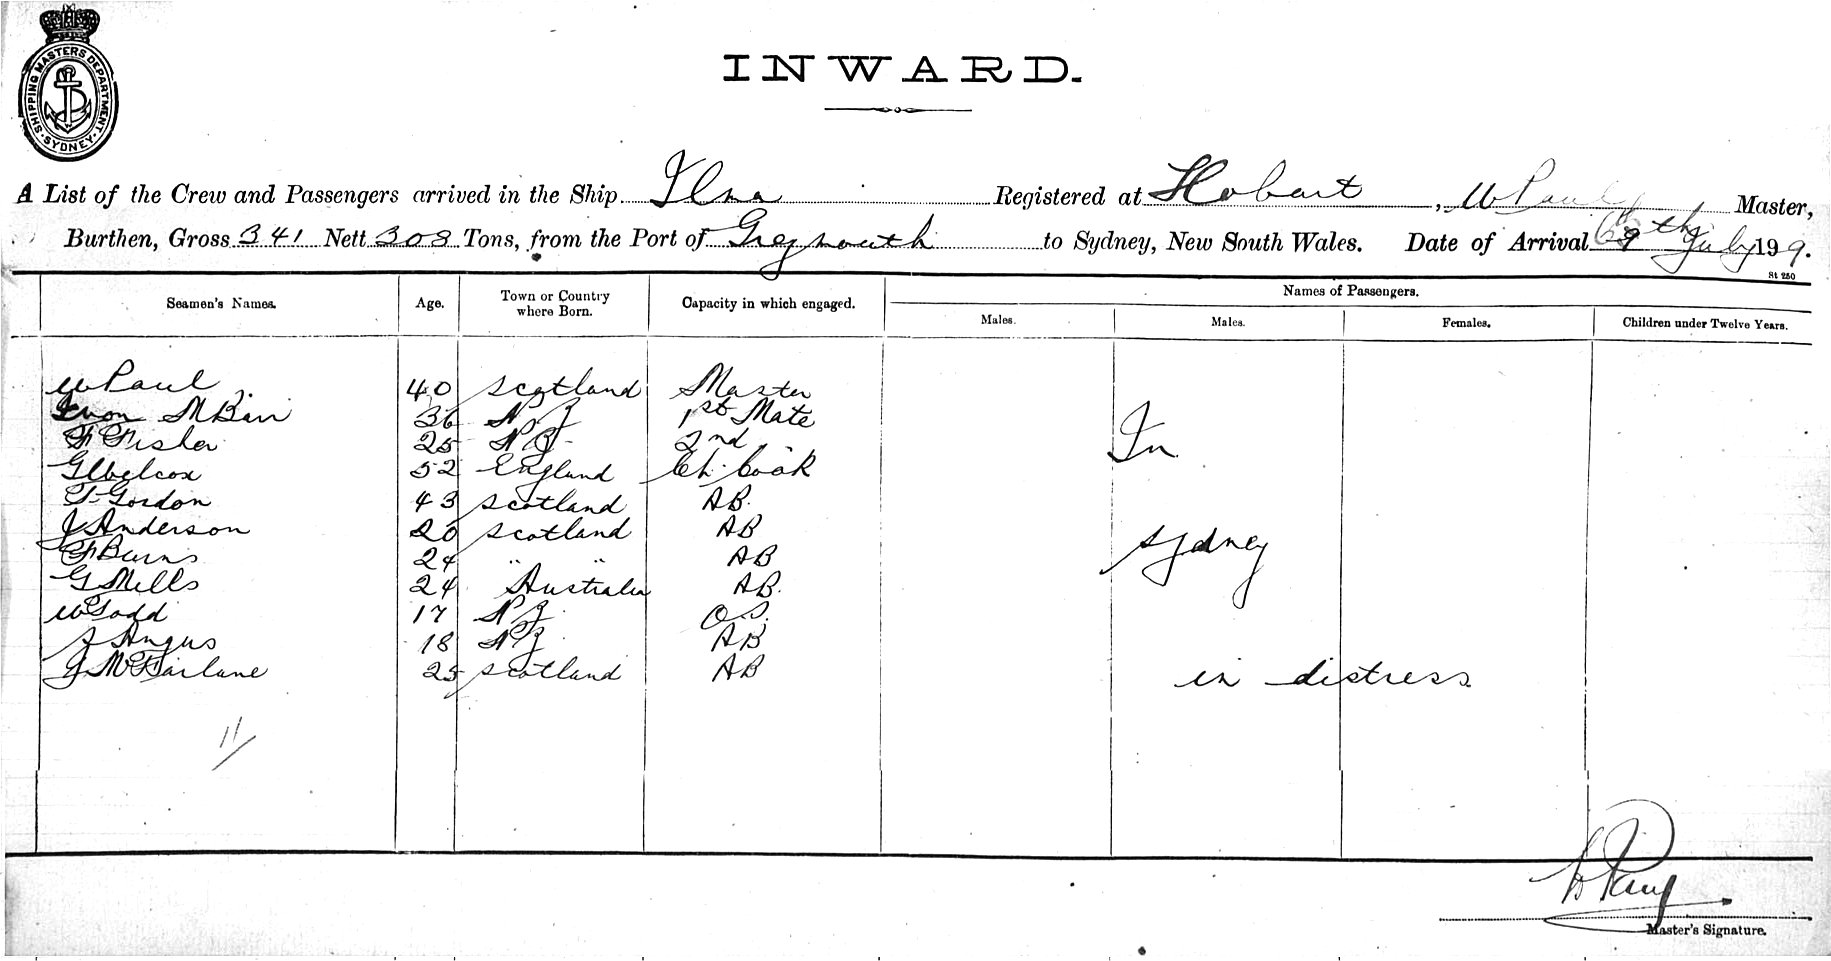 SHIPPING MASTERS DEPARTMENT.
SYDNEY
INWARD.
A List of the Crew and Passengers arrived in the Ship Ilma Registered at Hobart, W Paul Master,
Burthen, Gross 341 Nett 308 Tons, from the Port of Greymouth to Sydney, New South Wales. Date of Arrival 9th July 199.
St 250
Seamen's Names. Age. Town or Country where Born. Capacity in which engaged. Names of Passengers.
Males. Males. Females. Children under Twelve Years.
W Paul 40 Scotland Master
36 N Z 1st Mate
F Fisher 25 N Z 2nd "
In
52 England Ch. Cook
T Gordon 43 Scotland AB.
J Anderson 20 Scotland AB
Sydney
F Burns 24 " " AB
G Mills 24 Australia AB.
W Todd 17 N Z O.S.
J Angus 18 N Z AB
J McFarlane 25 Scotland AB
in distress
11
W Paul
Master's Signature.